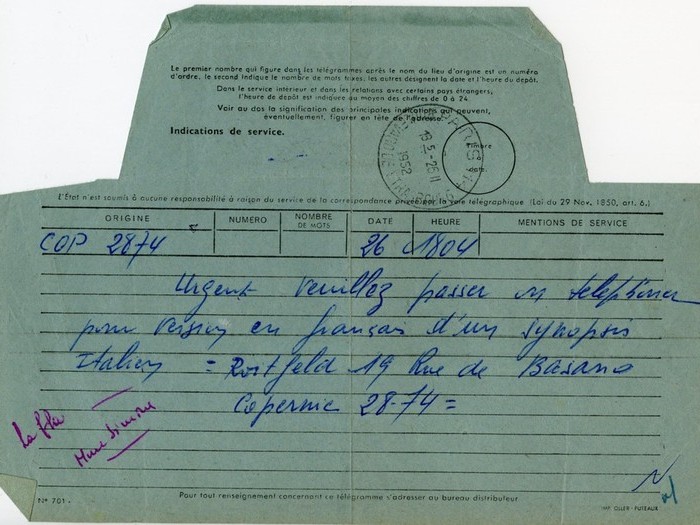 Le premier nombre qui figure dans les télégrammes après le nom du lieu d'origine est un numéro
d'ordre, le second indique le nombre de mots taxés, les autres désignent la date et l'heure du dépôt.
Dans le service intérieur et dans les relations avec certains pays étrangers,
l'heure de dépôt est indiquée au moyen des chiffres de 0 à 24.
Voir au dos la signification des principales indications qui peuvent,
éventuellement, figurer en tête de l'adresse.
Indications de service.
Timbre
date.
19 5-26
1952
L'État n'est soumis à aucune responsabilité à raison du service de la correspondance privée par la voie télégraphique (Loi du 29 Nov. 1850, art. 6.)
ORIGINE NUMÉRO NOMBRE DE MOTS DATE HEURE MENTIONS DE SERVICE
COP 2874 26 1804
Urgent veuillez passer ou telephoner
pour version en français d'un synopsis
Italien = 19 Rue de Bassano
Copernic 28-74 =
Mme Simone
N° 701 -
Pour tout renseignement concernant ce télégramme s'adresser au bureau distributeur
IMP. OLLER - PUTEAUX